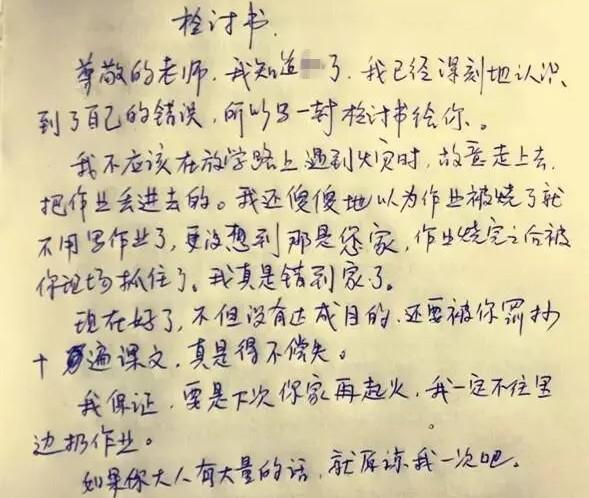 检讨书.
尊敬的老师,我知道 了,我已经深刻地认识
到了自己的错误,所以写一封检讨书给你、。
我不应该在放学路上遇到火灾时,故意走上去,
把作业丢进去的。我还傻傻地以为作业被烧了就
不用写作业了,更没想到那是您家,作业烧完之后被
你现场抓住了。我真是错到家了。
现在好了,不但没有达成目的,还要被你罚抄
十遍课文,真是得不偿失。
我保证,要是下次你家再起火,我一定不往里
边扔作业。
如果你大人有大量的话,就原谅我一次吧。